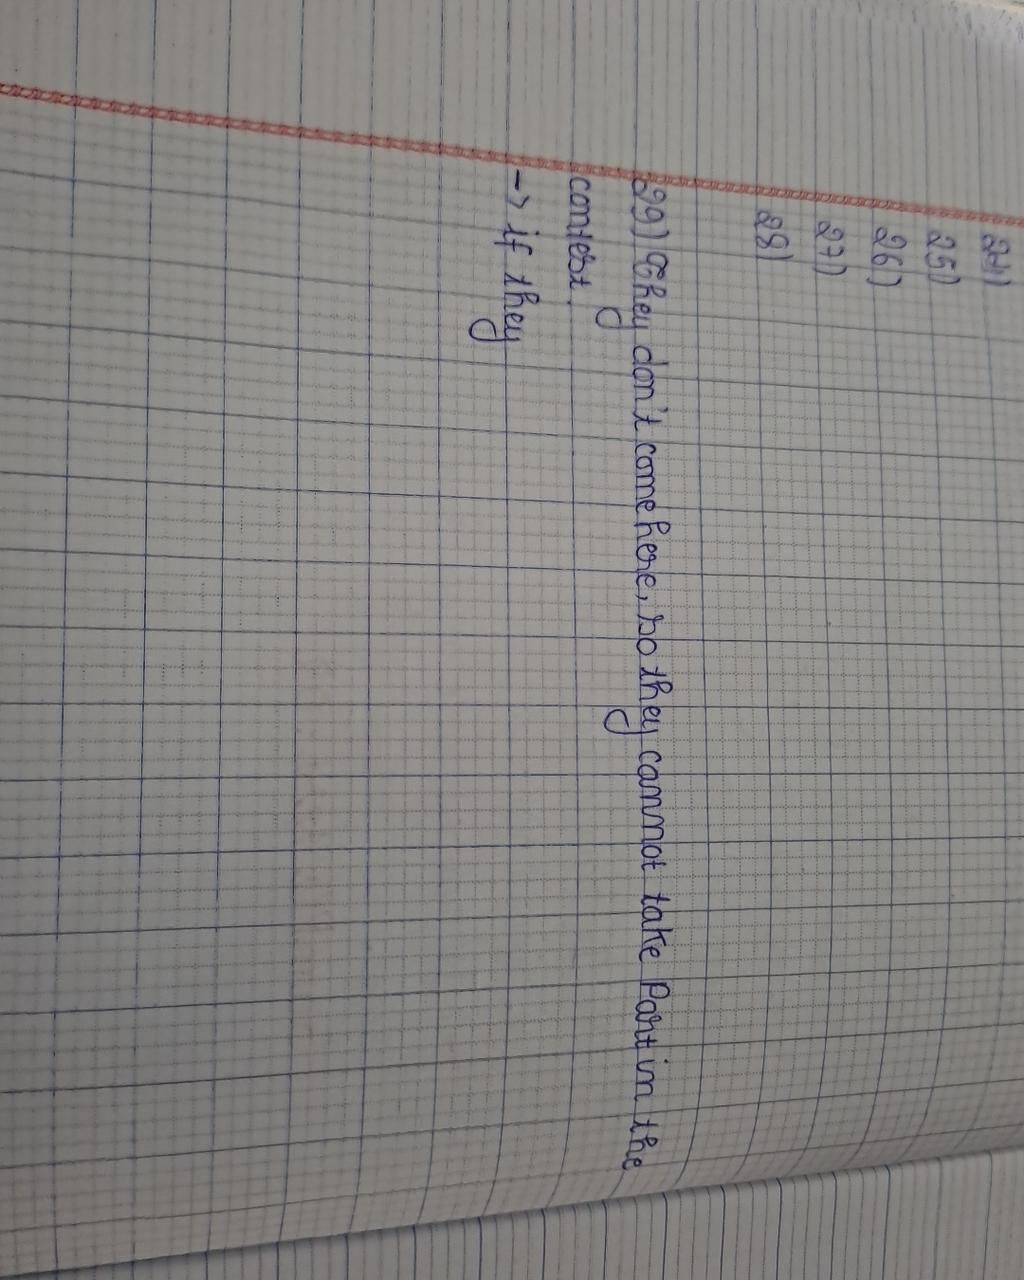 24)
25)
26)
27)
28)
29) They don't come here, so they cannot take Part in the
contest.
-> if they